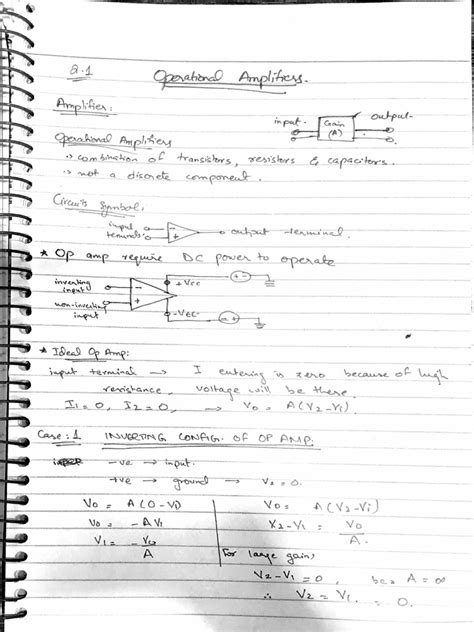 2.1 Operational Amplifiers.
Amplifier:
input. Gain (A) output.
Operational Amplifiers
combination of transistors, resistors & capacitors.
not a discrete component.
Circuit Symbol:
input terminals - + output terminal.
* Op amp require DC power to operate
inverting input - +Vcc + -
non-inverting input + -VEC - +
* Ideal Op Amp:
input terminal → I entering is zero because of high
resistance, voltage will be there.
I1 = 0, I2 = 0, → Vo = A(V2-Vi).
Case: 1 INVERTING CONFIG. OF OP AMP.
-ve → input.
+ve → ground → V2 = 0.
Vo = A(0-Vi) Vo = A(V2-Vi)
Vo = -AVi V2-Vi = Vo/A.
Vi = -Vo/A For large gain,
V2-Vi = 0, A = ∞
∴ V2 = Vi. = 0.